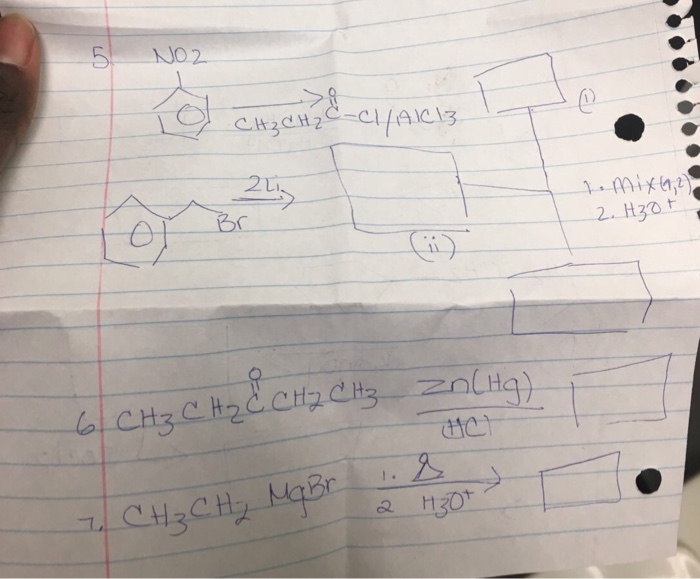 5. NO2
CH3CH2C-Cl/AlCl3
O
(i)
2Li
Br
(ii)
1. Mix(1,2)
2. H3O+
6. CH3CH2CCH2CH3
O
Zn(Hg)
HCl
7. CH3CH2MgBr
1.
2 H3O+